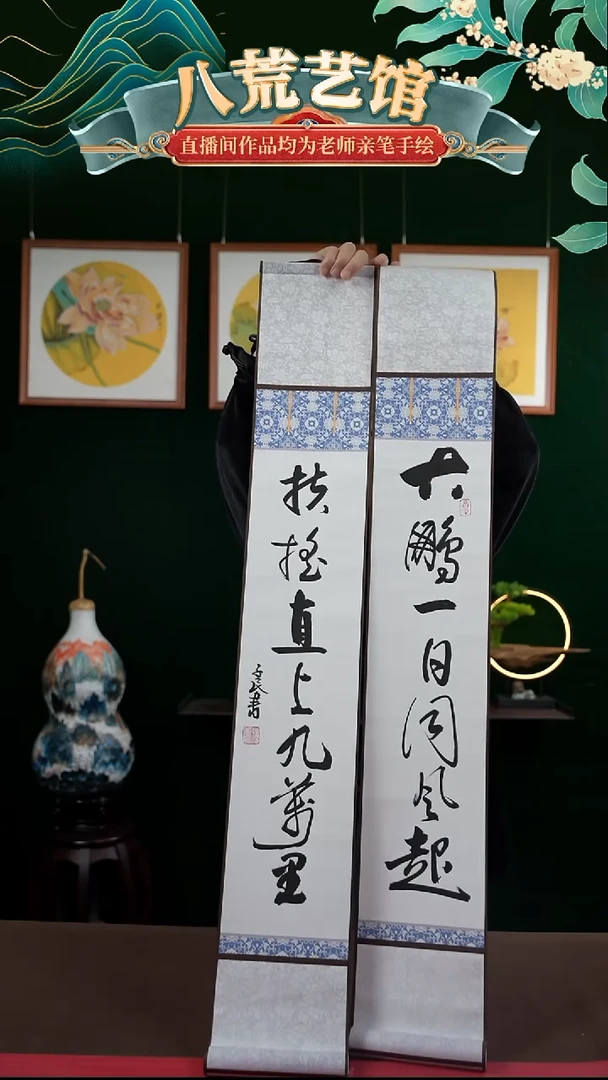 八荒艺馆
直播间作品均为老师亲笔手绘
大鹏一日同风起
扶摇直上九萬里